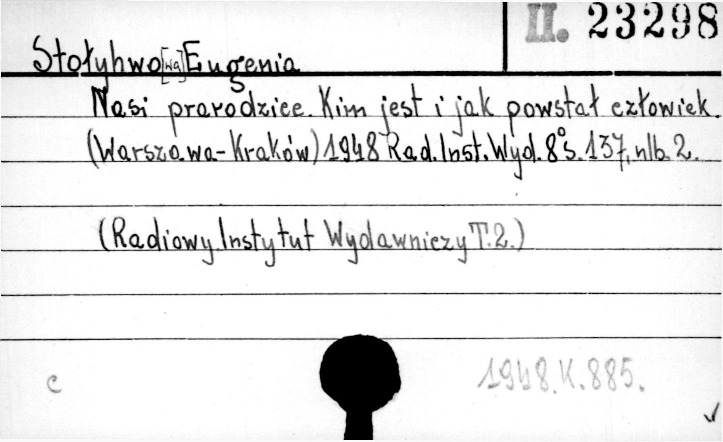 II. 23298
Stołyhwo[wa] Eugenia
Nasi prarodzice. Kim jest i jak powstał człowiek.
(Warszawa-Kraków) 1948 Rad. Inst. Wyd. 8° s. 137, nlb. 2.
(Radiowy Instytut Wydawniczy T. 2.)
c
1948.K.885.